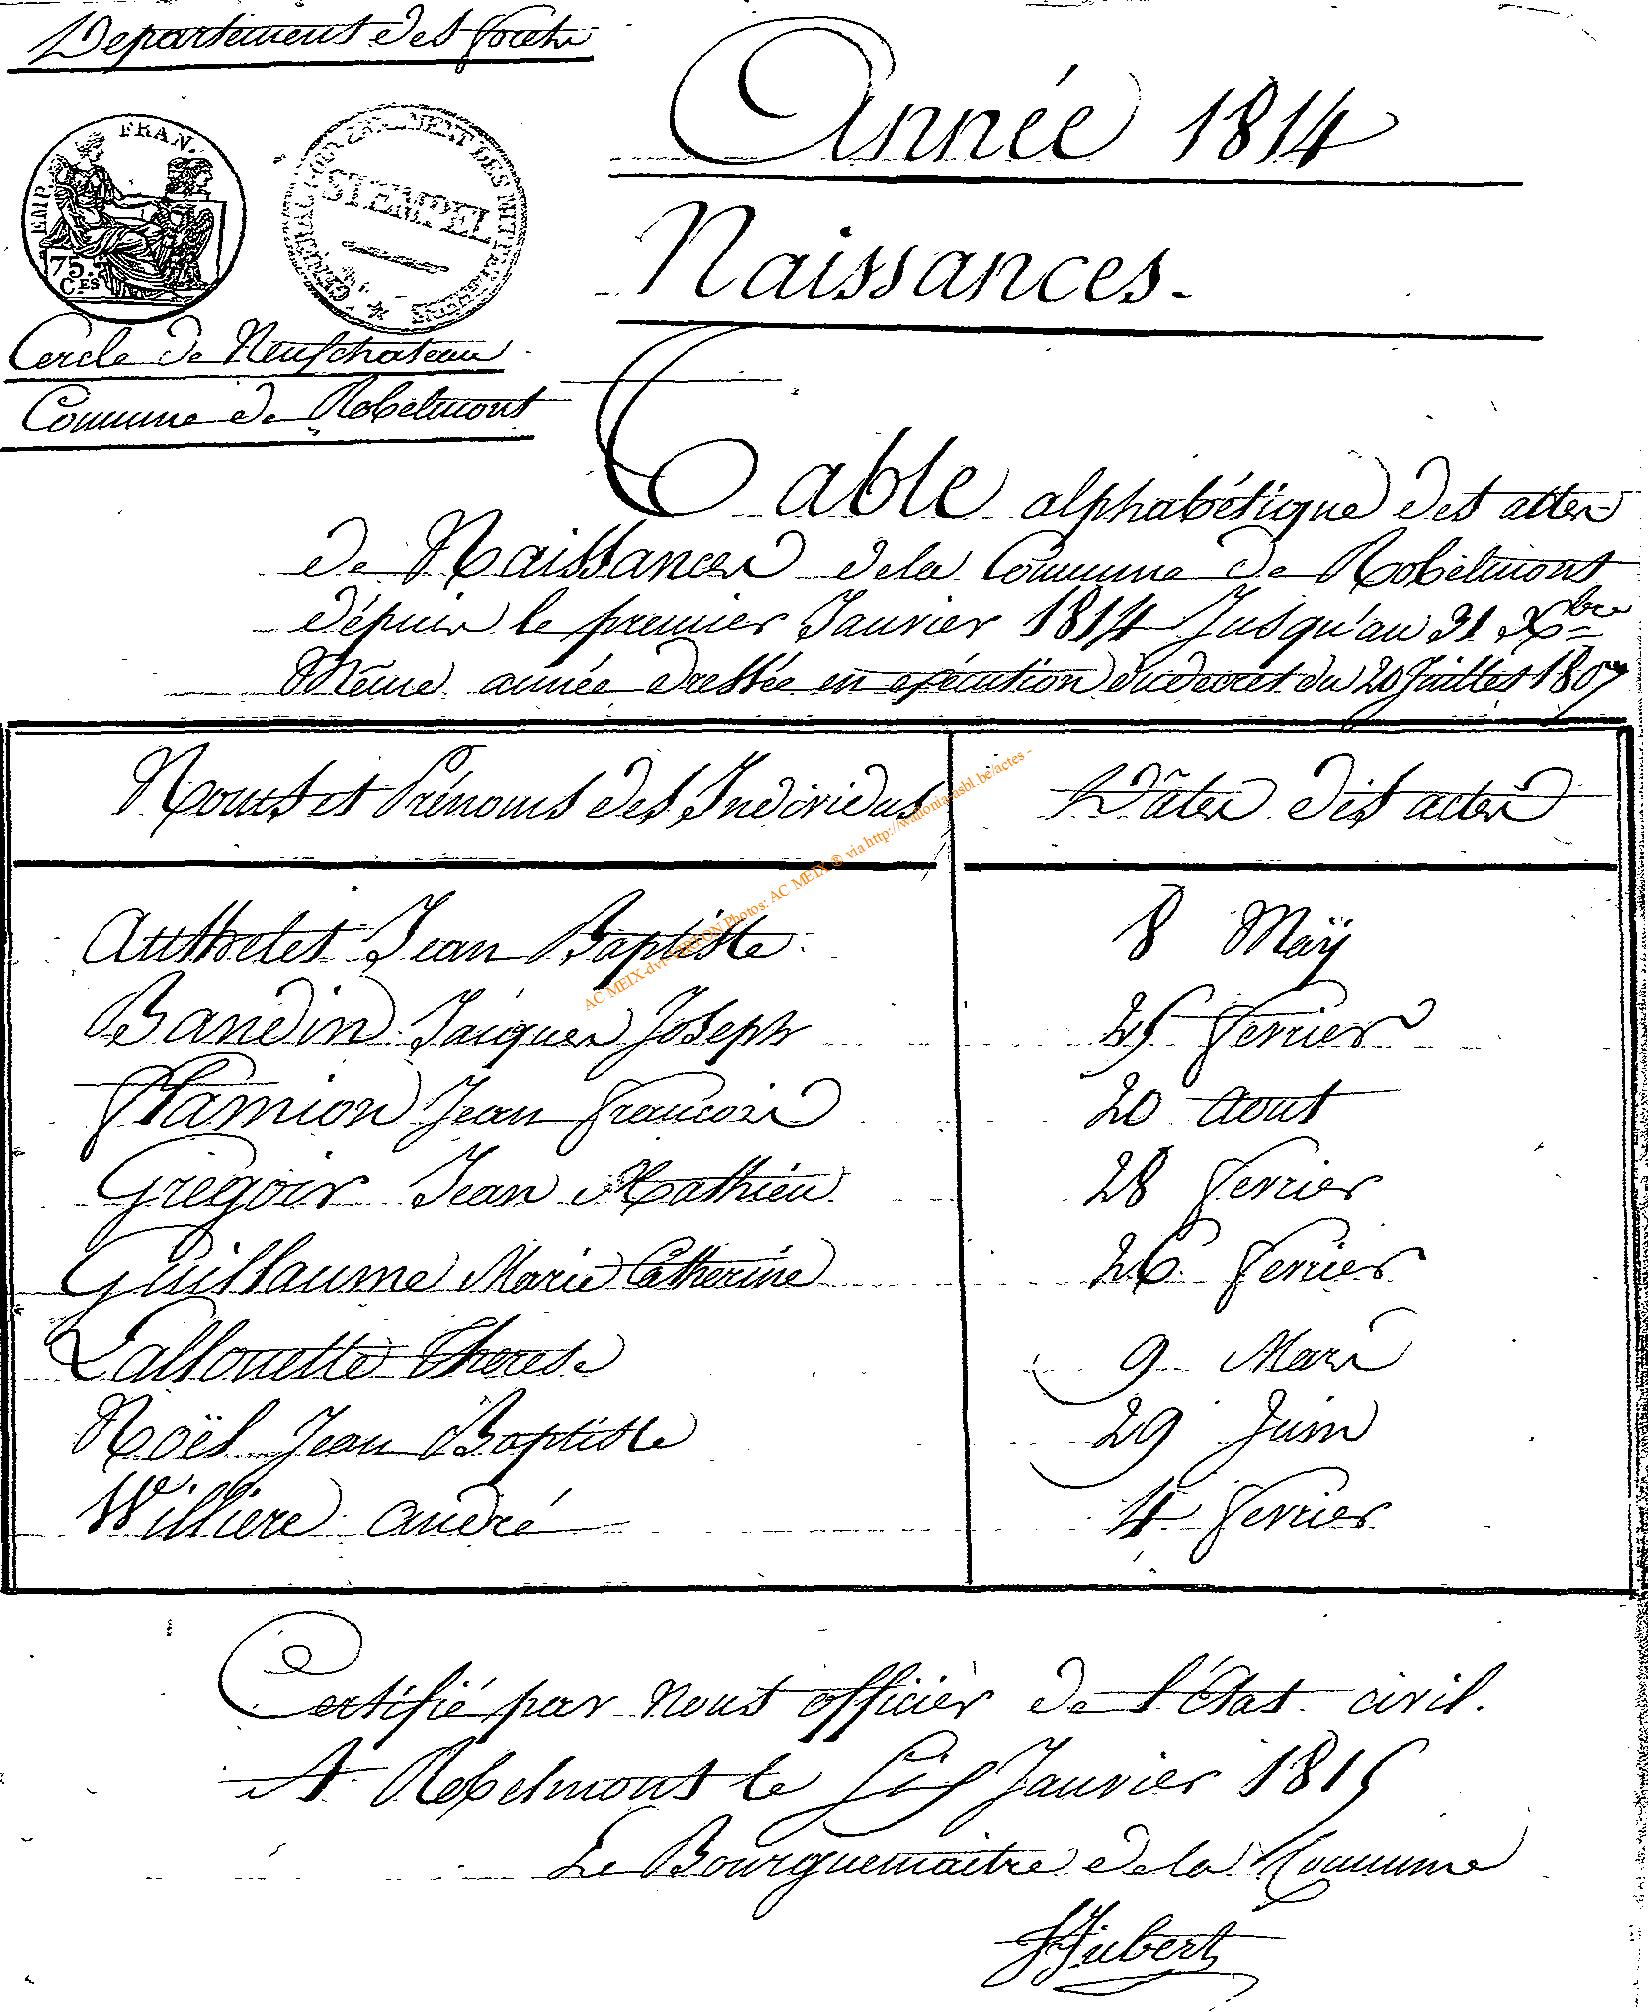 Departement des forets
Année 1814
EMP. FRAN.
75.
CES
STEMPEL
Naissances.
Cercle de Neufchateau
Commune de Robelmont
Table alphabétique des actes
de Naissances de la Commune de Robelmont
dépuis le premier Janvier 1814 Jusqu'au 31 Xbre
Même année dressée en exécution du decret du 20 Juillet 1807
Noms et Prénoms des Individus
Dâtes des actes
Authelet Jean Baptiste
8 Maÿ
Baudin Jacques Joseph
25 fevrier
Flamion Jean francois
20 aout
Gregoir Jean Mathieu
28 fevrier
Guillaume Marie Catherine
26 fevrier
Lallouette Therese
9 Mars
Noël Jean Baptiste
29 Juin
Williere andré
4 fevrier
Certifié par nous officier de l'état civil.
A Robelmont le Janvier 1815
Le Bourguemaitre de la Commune
Hubert
AC MEIX-dvt-VIRTON Photos: AC MEIX ® via http://walloniaasbl.be/actes -